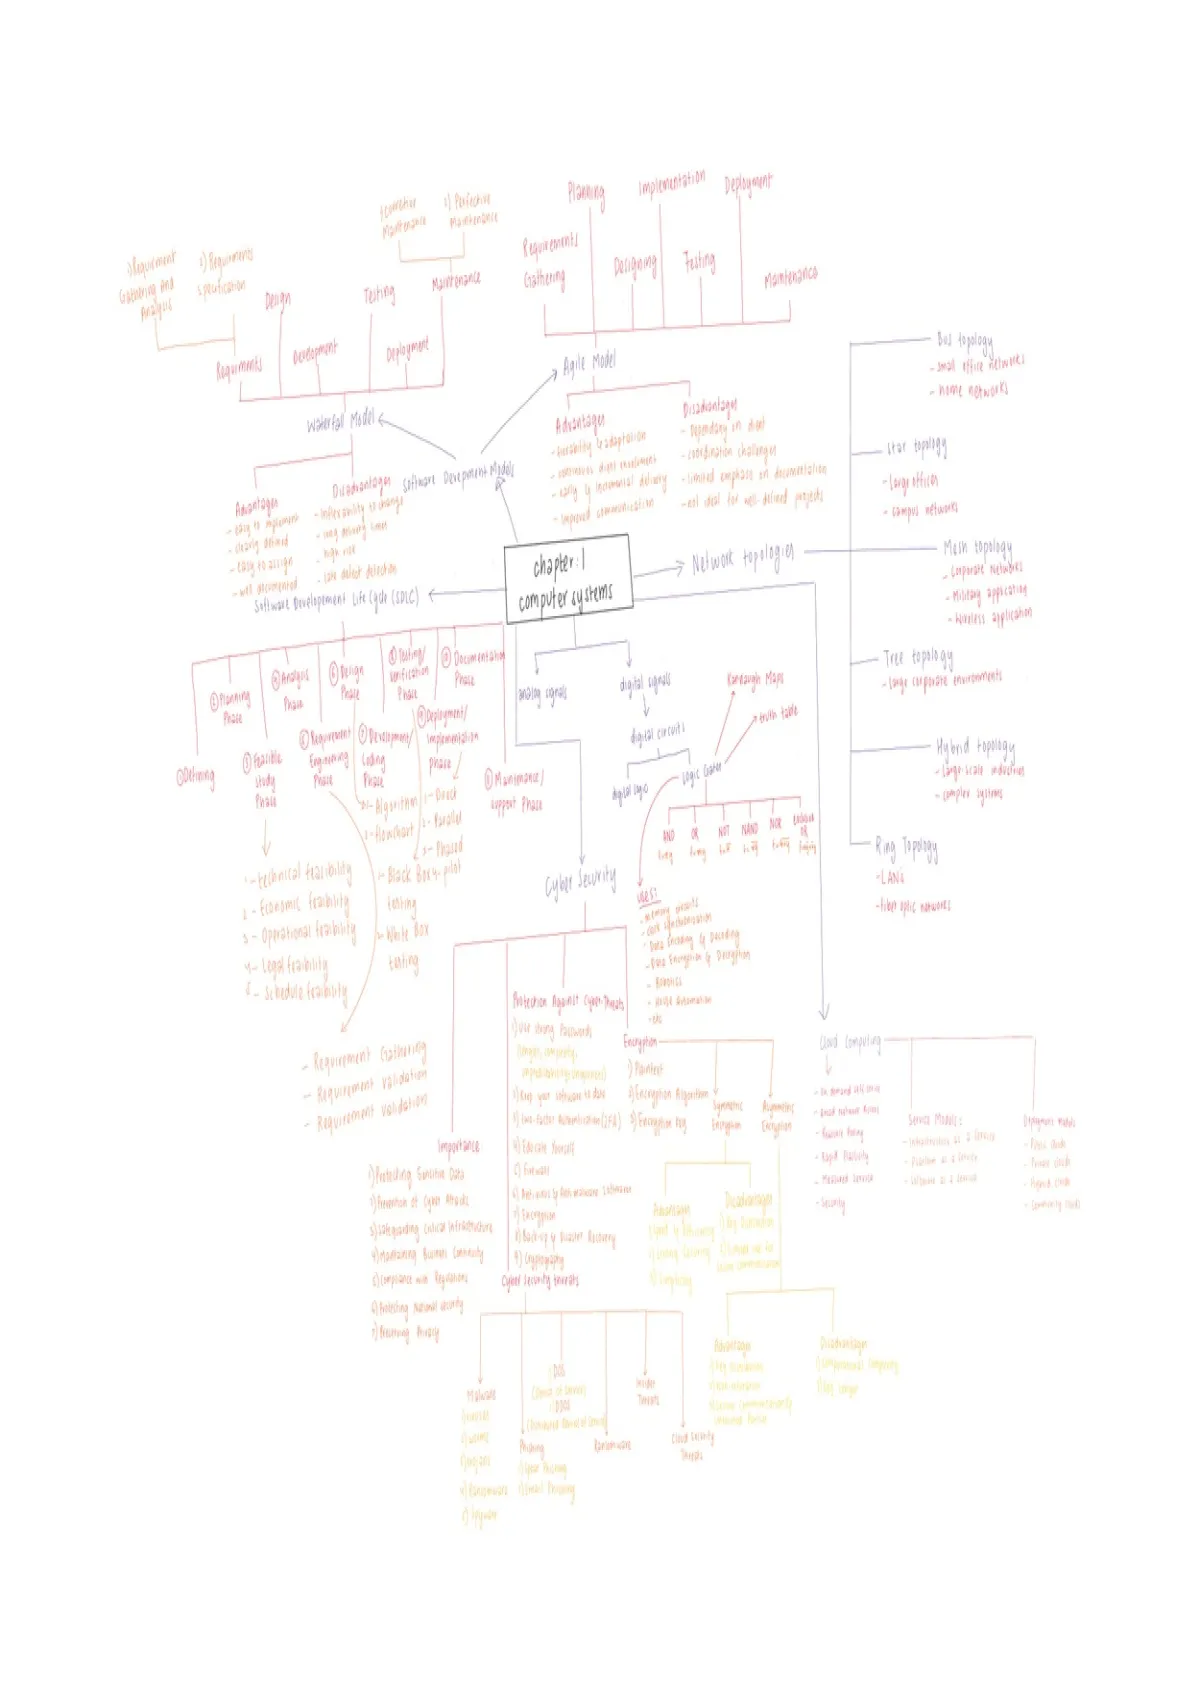 chapter: 1
computer systems
Software Devepment Models
Waterfall Model
Requirments
Gathering And
Analysis
2) Requirments
specification
Requirments
Design
Development
Testing
Deployment
Maintenance
Maintenance
2) Perfective
Maintenance
Advantages
- easy to implement
- clearly defined
- easy to assign
- well documented
Disadvantages
- inflexability to change
- long delivery times
- high risk
- late defect detection
Agile Model
Requirements
Gathering
Planning
Designing
Implementation
Testing
Deployment
Maintenance
Advantages
- continuous client
- early & incremental delivery
- improved communication
Disadvantages
- Dependany on client
- coordination challenges
- limited emphase on documentation
- not ideal for well-defined projects
Network topologies
Bus topology
- small office networks
- home networks
Star topology
- Large offices
- campus networks
Mesh topology
- Corporate Networks
- Military application
- Wireless application
Tree topology
- Large corporate environments
Hybrid topology
- Large-scale industries
- complex systems
Ring Topology
- LAN's
- fiber optic networks
Software Developement Life Cycle (SDLC)
① Defining
② Planning
Phase
③ Feasible
study
Phase
1 - technical feasibility
2 - Economic feasibility
3 - Operational feasibility
4 - Legal feasibility
5 - Schedule feasibility
④ Analysis
Phase
Requirement
Engineering
Phase
- Requirement Gathering
- Requirement validation
- Requirement validation
⑥ Design
Phase
1 - Algorithm
2 - flowchart
⑦ Development/
Coding
Phase
⑧ Testing/
Verification
Phase
- Black Box
testing
- White Box
testing
⑨ Deployment/
Implementation
Phase
1 - Direct
2 - Parallel
3 - Phased
4 - pilot
Documentation
Phase
Maintenance/
support Phase
analog signals
digital signals
digital circuits
digital logic
Logic Gates
Karnaugh Maps
truth table
AND
OR
NOT
NAND
NOR
Exclusive
OR
uses:
- memory circuits
- clock synchronization
- Data Encoding & Decoding
- Data Encryption & Decryption
- Robotics
- House Automation
- etc
Cyber Security
Importance
1) Protecting Sensitive Data
2) Prevention of Cyber Attacks
3) Safeguarding Critical Infrastructure
4) Maintaining Business Continuity
5) Compliance with Regulations
6) Protecting National security
7) Preserving Privacy
Protection Against Cyber-Threats
1) Use strong Passwords
2) Keep your software to date
3) two-factor Authentication (2FA)
4) Educate Yourself
5) Firewalls
6) Antivirus & Antimalware software
7) Encryption
8) Back-up & Disaster Recovery
9) Cryptography
Cyber Security threats
Malware
2) worms
3) trojans
4) Ransomware
5) Spyware
Phishing
1) Spear Phishing
2) Email Phishing
DOS
(Denial of Service)
DDOS
(Distributed Denial of Service)
Ransomware
Insider
Threats
Cloud Security
Threats
Encryption
1) Plaintext
2) Encryption Algorithm
3) Encryption key
Symmetric
Encryption
Advantages
Disadvantages
1) Key Distribution
Asymmetric
Encryption
Advantages
1) Key distribution
Disadvantages
Cloud Computing
- On demand self service
- Broad Network Access
- Resource Pooling
- Rapid Elasticity
- Measured Service
- Security
Service Models:
- Infrastructure as a Service
- Platform as a Service
- Software as a Service
Deployment models
- Public clouds
- Private clouds
- Hybrid clouds
- Community clouds